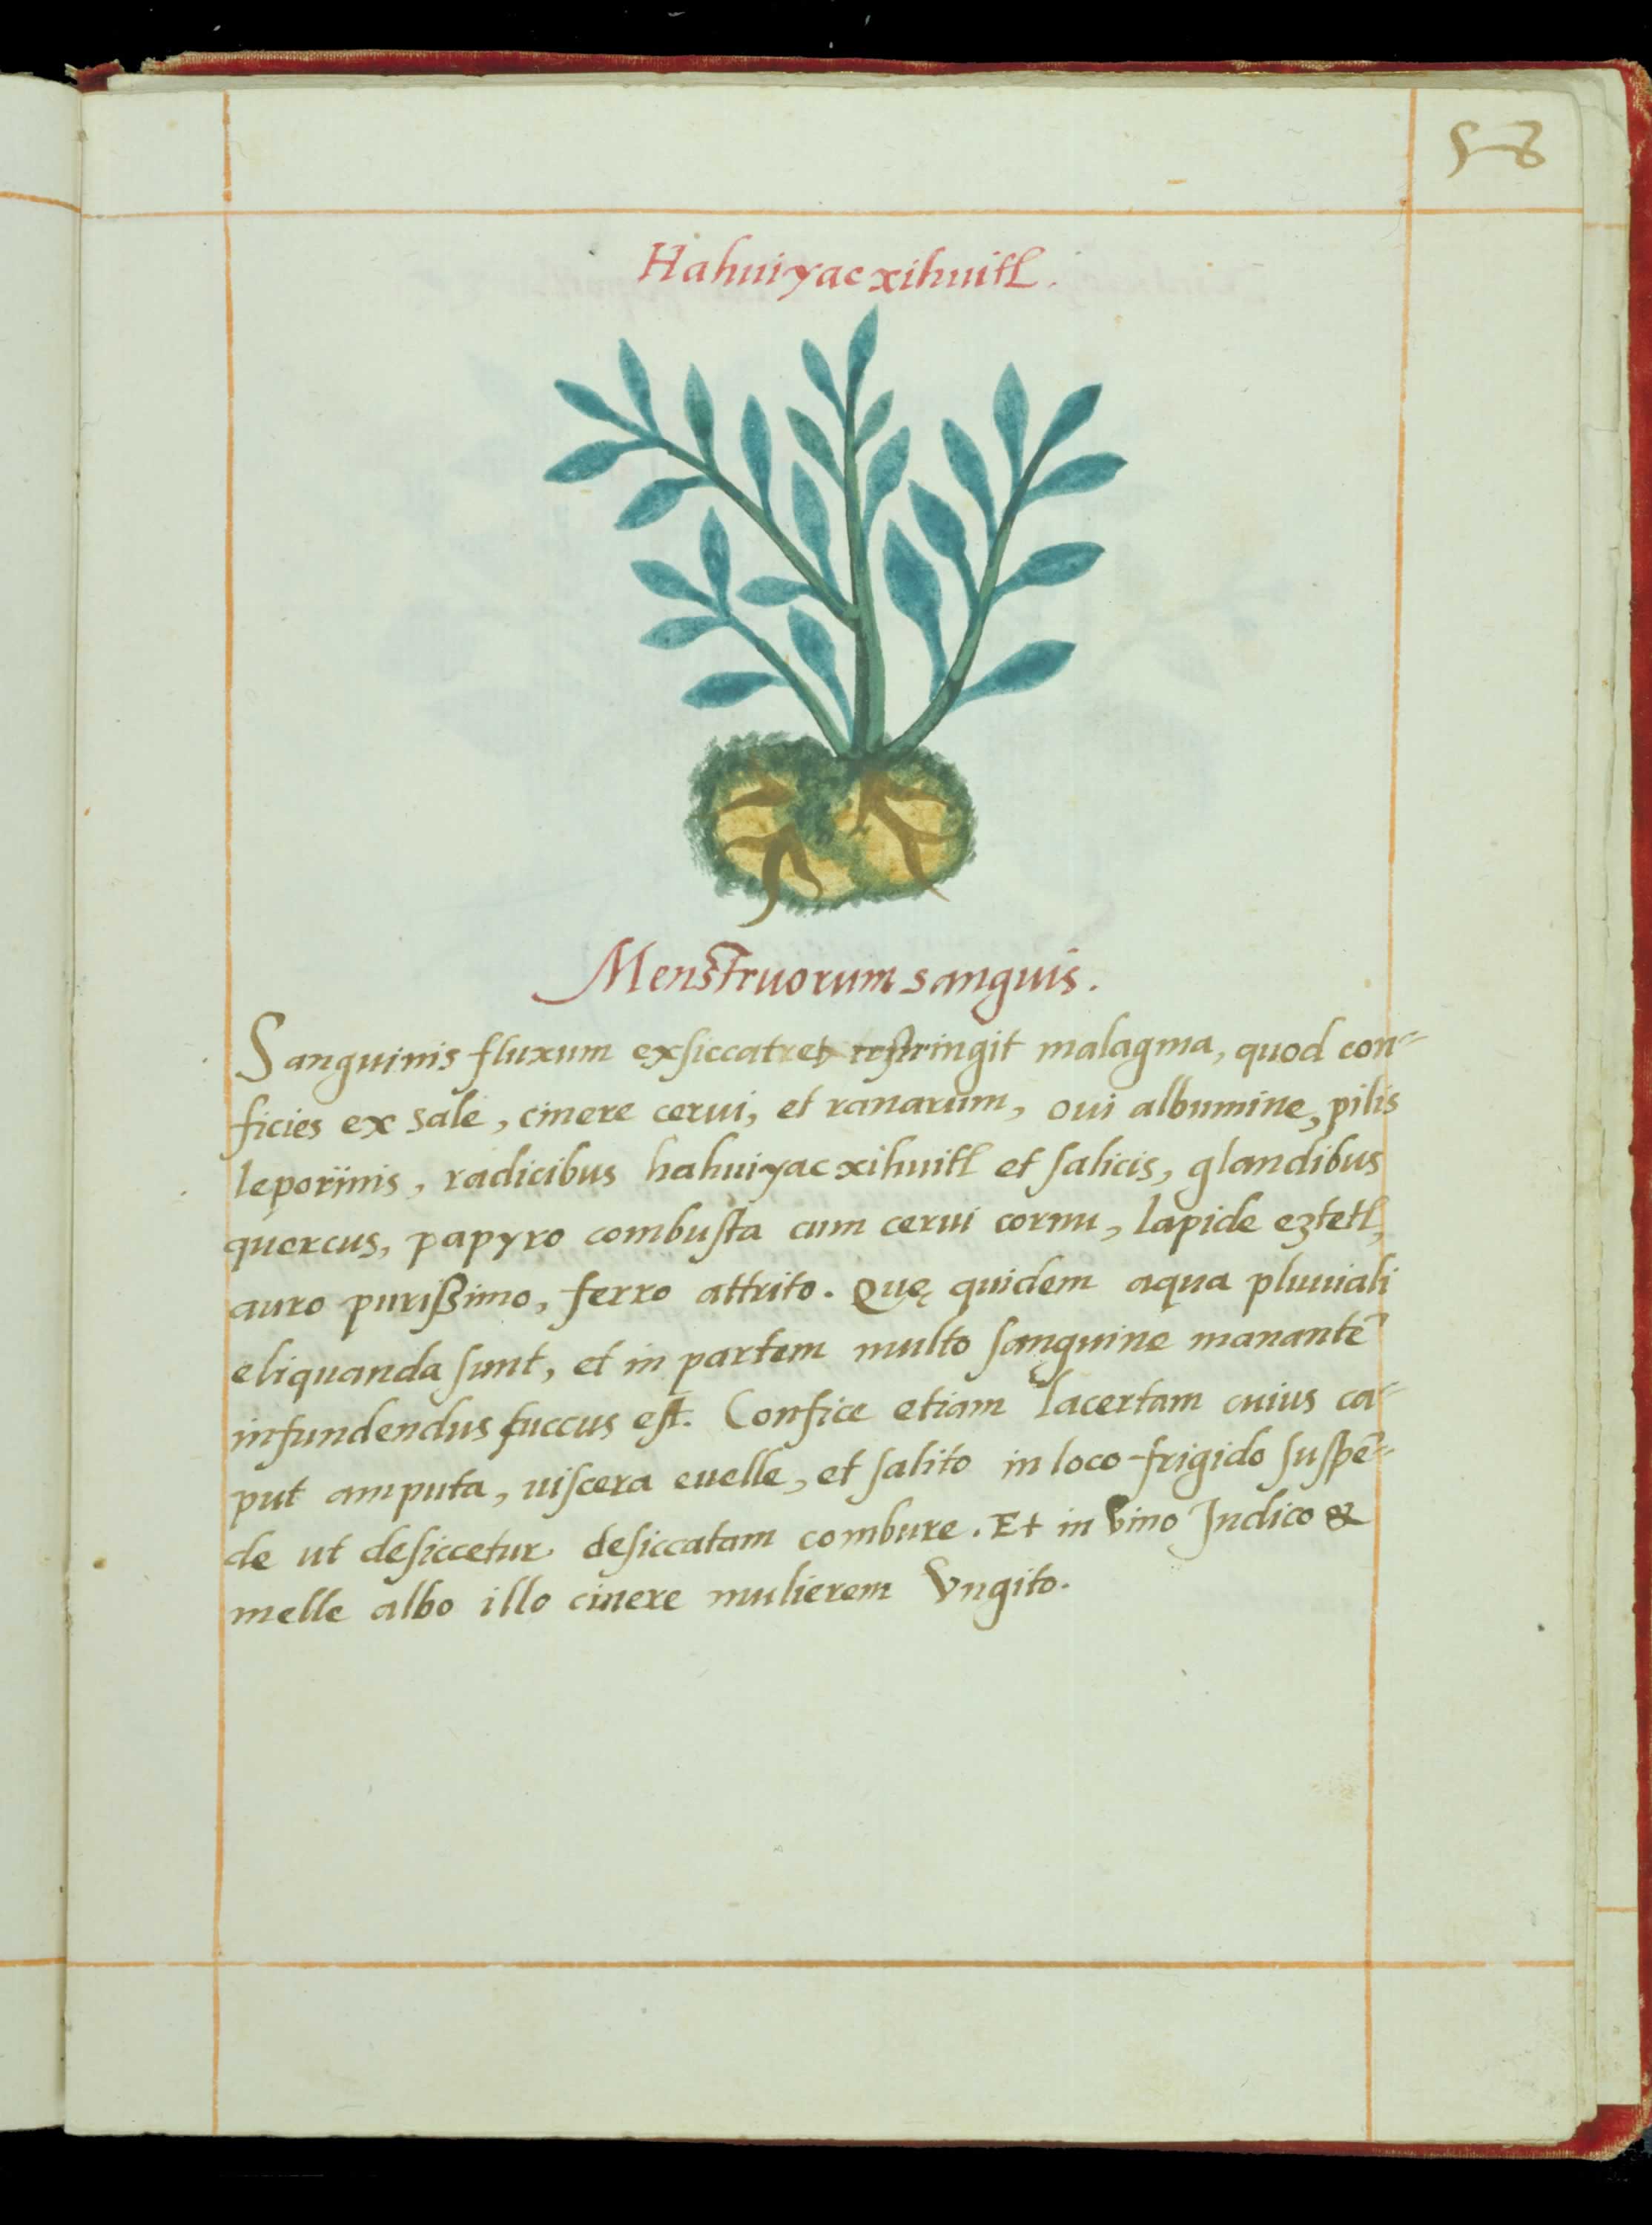 58
Hahuiyacxihuitl.
Menstruorum sanguis.
Sanguinis fluxum exsiccat et restringit malagma, quod con=
ficies ex sale, cinere cerui, et ranarum, oui albumine, pilis
leporijnis, radicibus hahuiyacxihuitl et salicis, glandibus
quercus, papyro combusta cum cerui cornu, lapide eztetl,
auro purißimo, ferro attrito. Quę quidem aqua pluuiali
eliquanda sunt, et in partem multo sanguine manantē
infundendus succus est. Confice etiam lacertam cuius ca=
put amputa, uiscera euelle, et salito in loco frigido suspē=
de ut desiccetur. desiccatam combure. Et in vino Indico &
melle albo illo cinere mulierem Vngito.